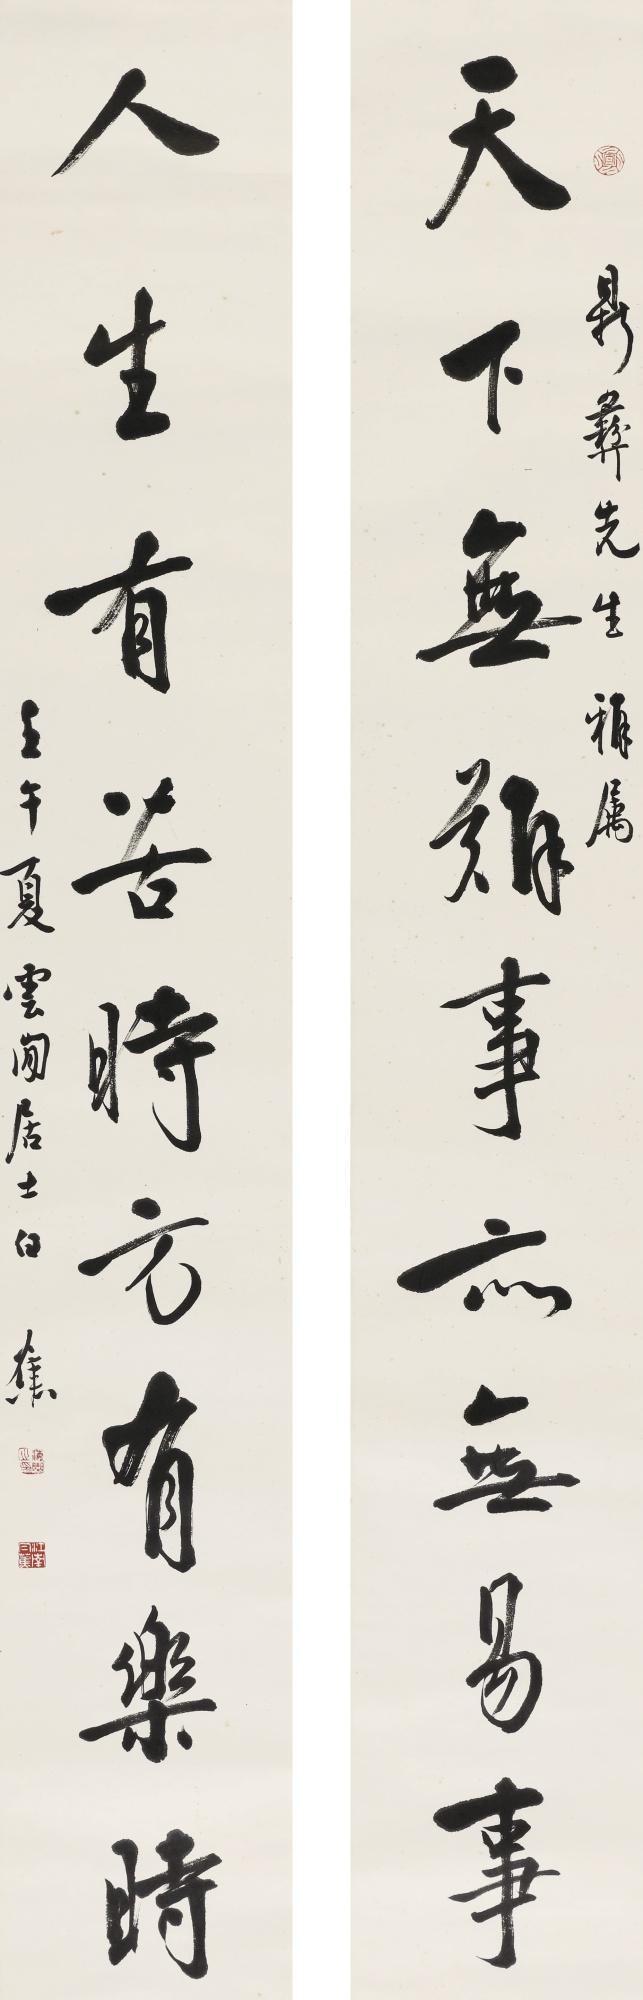 天下無難事亦無易事
鼎彝先生雅属
人生有苦時方有樂時
壬午夏雲間居士白蕉